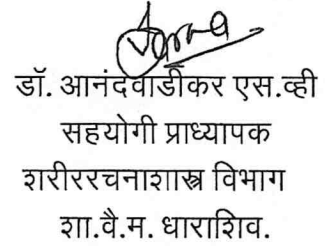 डॉ. आनंदवाडीकर एस.व्ही
सहयोगी प्राध्यापक
शरीररचनाशास्त्र विभाग
शा.वै.म. धाराशिव.